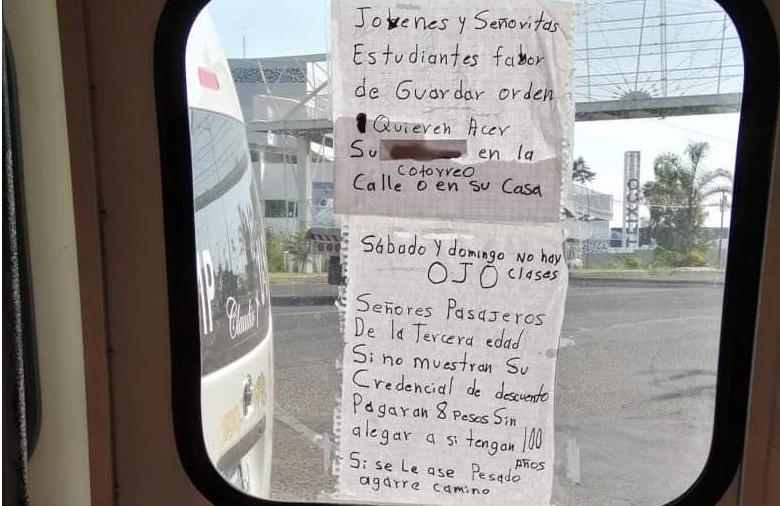 Jovenes y Señoritas
Estudiantes fabor
de Guardar orden
Quieren Acer
Su en la
cotorreo
Calle o en su Casa
Sábado y domingo No hay
OJO clases
Señores Pasajeros
De la Tercera edad
Si no muestran Su
Credencial de descuento
Pagaran 8 pesos Sin
alegar a si tengan 100
Años
Si se Le ase Pesado
agarre camino
Claudio